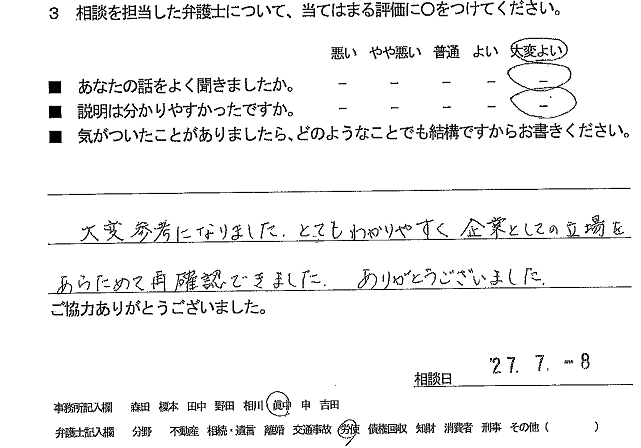 3 相談を担当した弁護士について、当てはまる評価に○をつけてください。
悪い やや悪い 普通 よい 大変よい
■ あなたの話をよく聞きましたか。 － － － － －
■ 説明は分かりやすかったですか。 － － － － －
■ 気がついたことがありましたら、どのようなことでも結構ですからお書きください。
大変参考になりました。とてもわかりやすく企業としての立場を
あらためて再確認できました。 ありがとうございました。
ご協力ありがとうございました。
相談日 '27. 7. -8
事務所記入欄 森田 榎本 田中 野田 相川 眞中 申 吉田
弁護士記入欄 分野 不動産 相続・遺言 離婚 交通事故 労使 債権回収 知財 消費者 刑事 その他（ ）